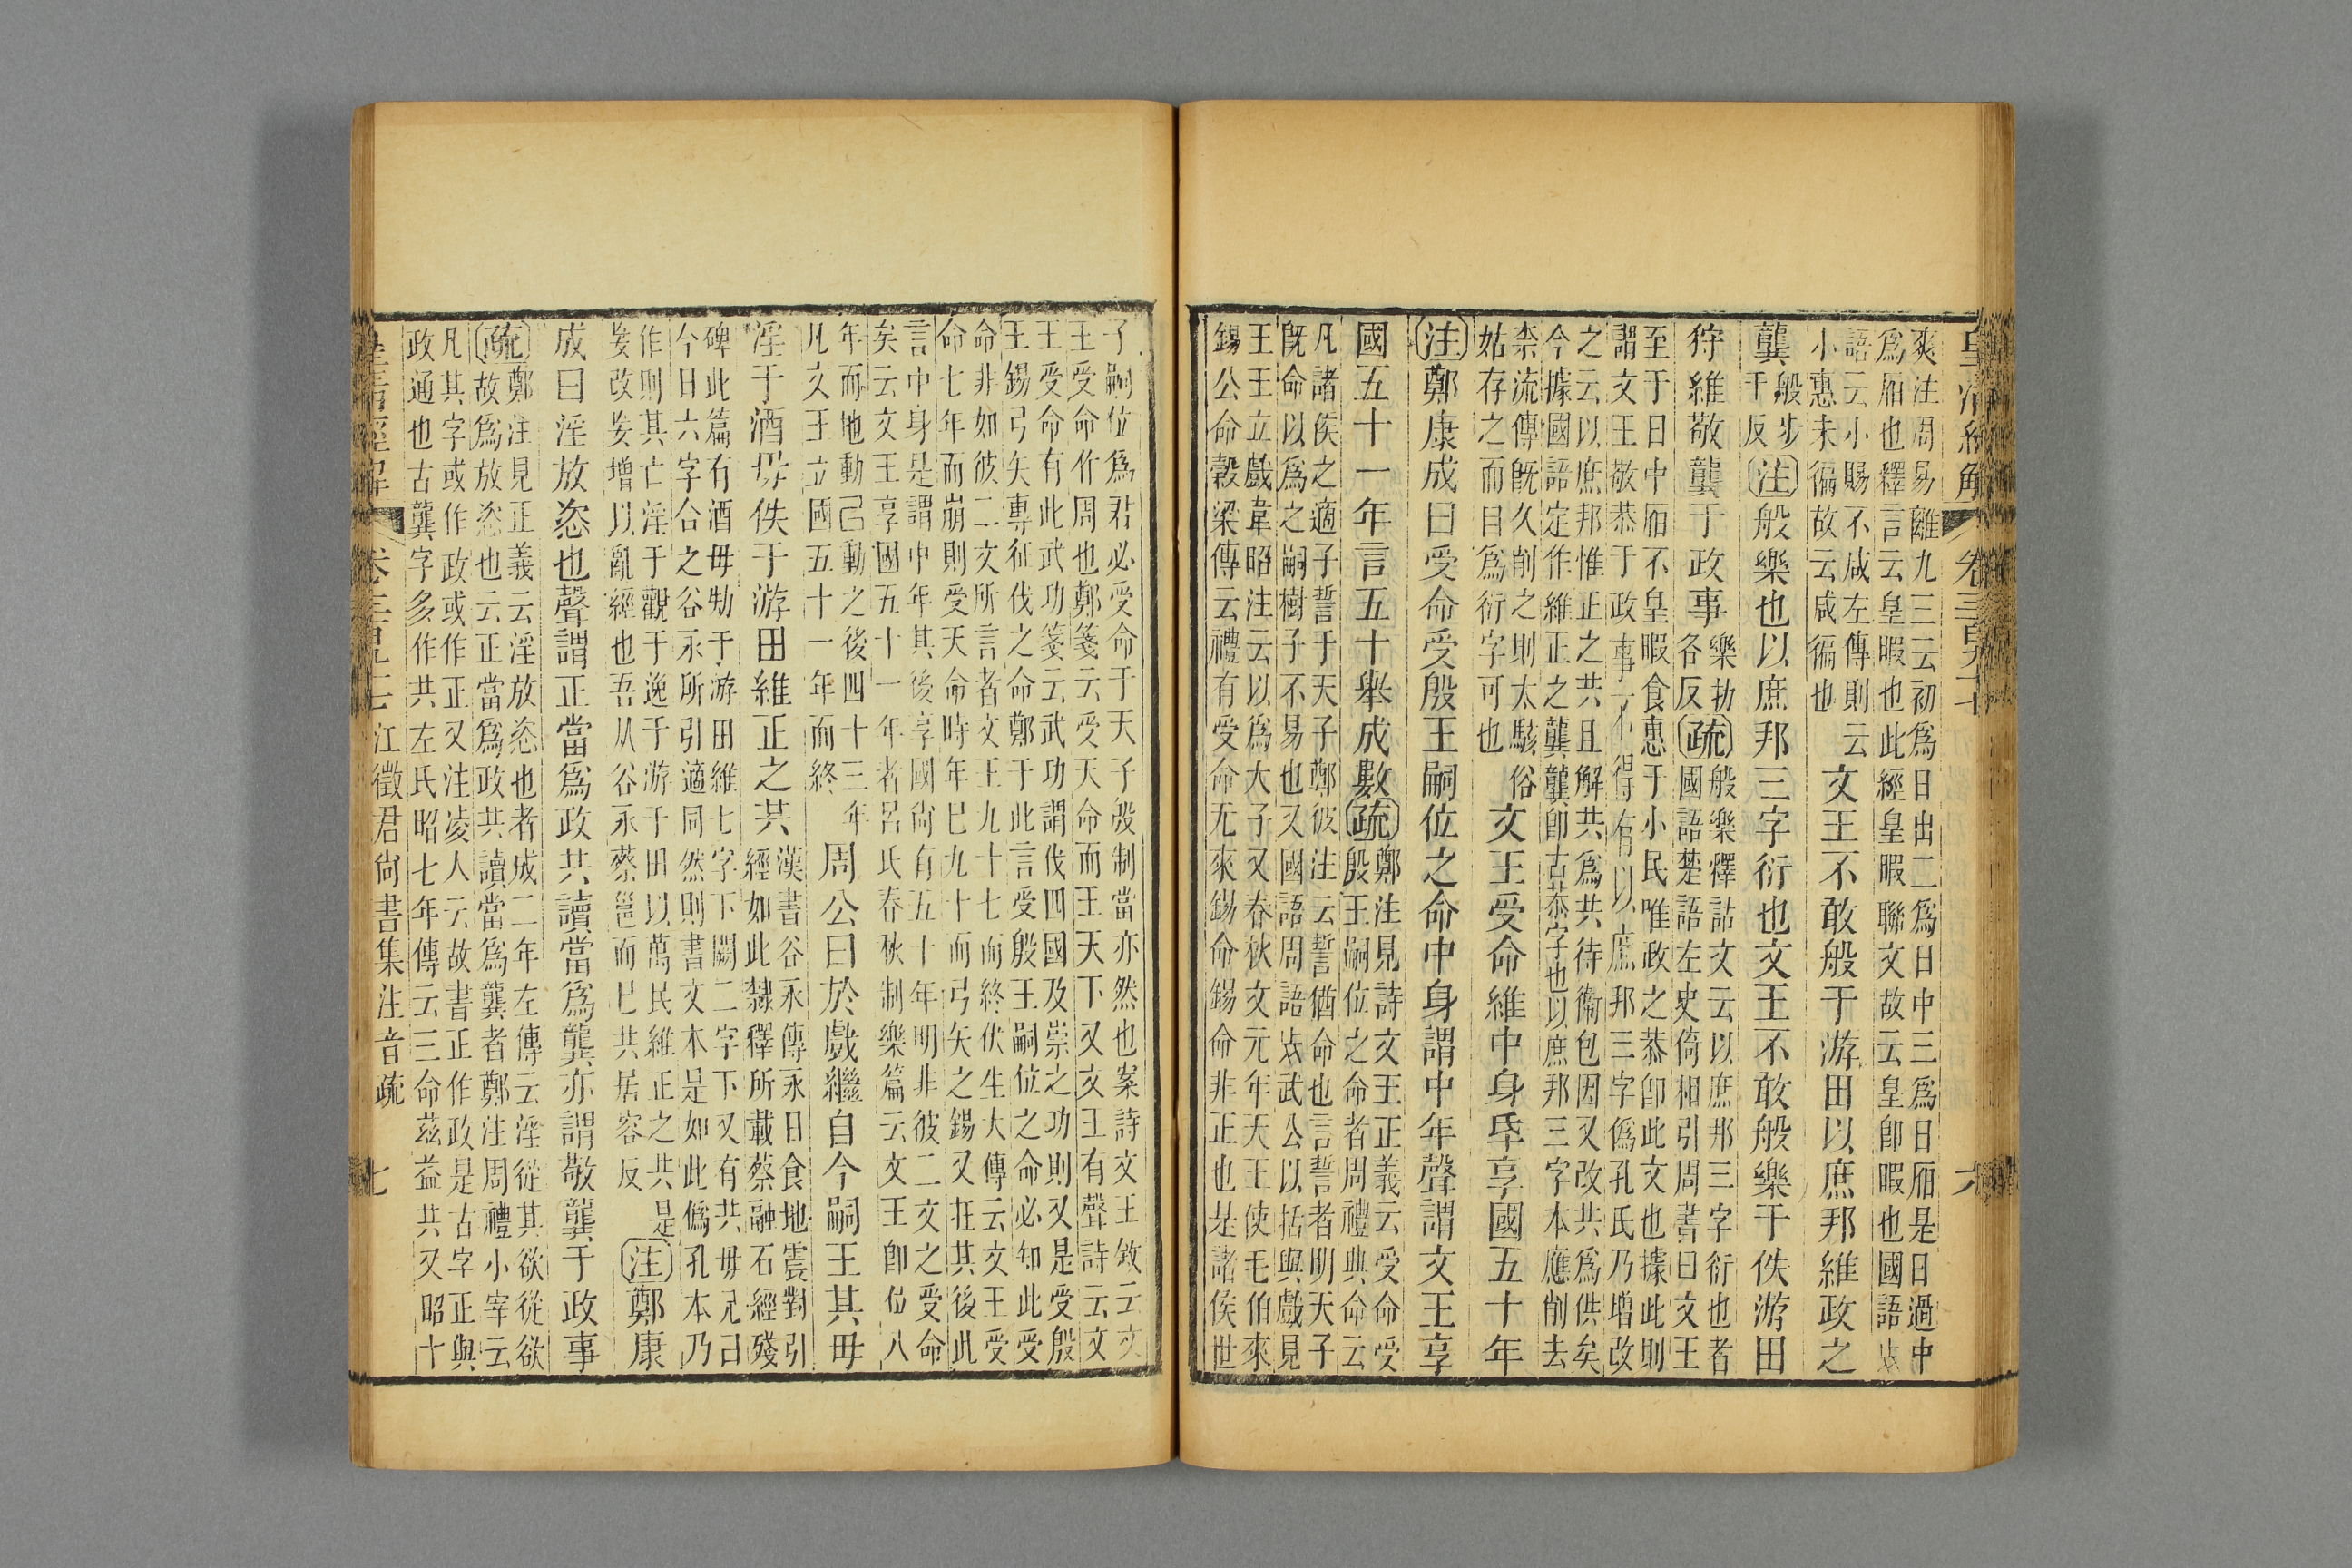 皇清經解 卷三百九十 六
爽注周易離九三云初爲日出二爲日中三爲日厢是日過中
爲厢也釋言云皇暇也此經皇暇聯文故云皇卽暇也國語
語云小賜不咸左傳則云
小惠未徧故云咸徧也
文王不敢般于游田以庶邦維政之
龔
般步
干反
注般樂也以庶邦三字衍也文王不敢般樂于佚游田
狩維敬龔于政事
樂勑
各反
疏
般樂釋詁文云以庶邦三字衍也者
國語楚語左史倚相引周書曰文王
至于日中厢不皇暇食惠于小民唯政之恭卽此文也據此則
謂文王敬恭于政事不得有以庶邦三字僞孔氏乃增改
之云以庶邦惟正之共且解共爲共待衞包因又改共爲供矣
今據國語定作維正之龔龔卽古恭字也以庶邦三字本應削去
柰流傳旣久削之則太駭俗
姑存之而日爲衍字可也
文王受命維中身氒享國五十年
注鄭康成曰受命受殷王嗣位之命中身謂中年聲謂文王享
國五十一年言五十舉成數疏
鄭注見詩文王正義云受命受
殷王嗣位之命者周禮典命云
凡諸侯之適子誓于天子鄭彼注云誓猶命也言誓者明天子
旣命以爲之嗣樹子不易也又國語周語武公以括與戲見
王王立戲韋昭注云以爲大子又春秋文元年天王使毛伯來
錫公命穀梁傳云禮有受命无來錫命錫命非正也是諸侯世
子嗣位爲君必受命于天子殷制當亦然也案詩文王敘云文
王受命作周也鄭箋云受天命而王天下又文王有聲詩云文
王受命有此武功箋云武功謂伐四國及崇之功則又是受殷
王錫弓矢專征伐之命鄭于此言受殷王嗣位之命必知此受
命非如彼二文所言者文王九十七而終伏生大傳云文王受
命七年而崩則受天命時年巳九十而弓矢之錫又在其後此
言中身是謂中年其後享國尙有五十年明非彼二文之受命
矣云文王享國五十一年者呂氏春秋制樂篇云文王卽位八
年而地動己動之後四十三年
凡文王立國五十一年而終
周公曰於戲繼自今嗣王其毋
淫于酒毋佚于游田維正之共
漢書谷永傳永日食地震對引
經如此隸釋所載蔡融石經殘
碑此篇有酒毋勑于游田維七字下闕二字下又有共毋兄曰
今日六字合之谷永所引適同然則書文本是如此僞孔本乃
作則其亡淫于觀于逸于游于田以萬民維正之共是
妄改妄增以亂經也吾从谷永蔡邕而巳共居容反
注鄭康
成曰淫放恣也聲謂正當爲政共讀當爲龔亦謂敬龔于政事
疏
鄭注見正義云淫放恣也者成二年左傳云淫從其欲從欲
故爲放恣也云正當爲政共讀當爲龔者鄭注周禮小宰云
凡其字或作政或作正又注凌人云故書正作政是古字正與
政通也古龔字多作共左氏昭七年傳云三命茲益共又昭十
皇清經解 卷三百九十 江徵君尙書集注音疏 七